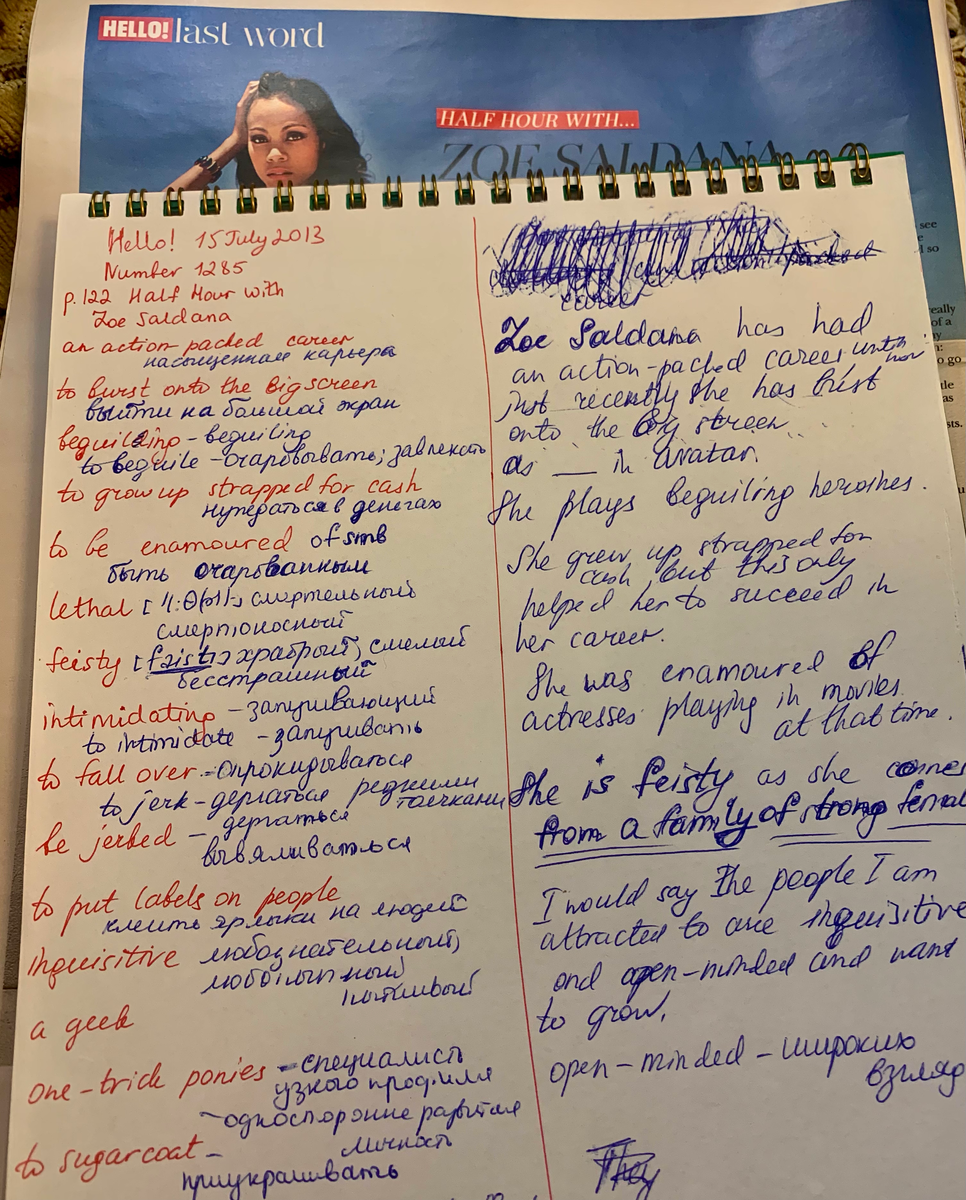 HELLO! last word
HALF HOUR WITH...
ZOE SALDANA
see
so
eally
of a
to go
as
sts.
Hello! 15 July 2013
Number 1285
p. 122 Half Hour with
Zoe Saldana
an action packed career
насыщенная карьера
to burst onto the big screen
выйти на большой экран
beguileing - beguiling
to beguile - очаровывать; завлекать
to grow up strapped for cash
нуждаться в деньгах
to be enamoured of smb
быть очарованным
lethal смертельный
смертоносный
feisty [faisti] храбрый, смелый
бесстрашный
intimidating - запугивающий
to intimidate - запугивать
to fall over - опрокидываться
to jerk - дергаться резкими толчками
be jerbed - дергаться
вывяливаться
to put labels on people
клеить ярлыки на людей
inquisitive любознательный,
любопытный
пытливый
a geek
one-trick ponies - специалист
узкого профиля
- односторонне развитая
личность
to sugarcoat -
приукрашивать
career
Zoe Saldana has had
an action-packed career until now
just recently she has burst
onto the big screen
as __ in Avatar.
She plays beguiling heroines.
She grew up strapped for
cash, but this only
helped her to succeed in
her career.
She was enamoured of
actresses playing in movies
at that time.
She is feisty as she comes
from a family of strong femal
I would say the people I am
attracted to are inquisitive
and open-minded and want
to grow.
open-minded - широких
взгляд
They